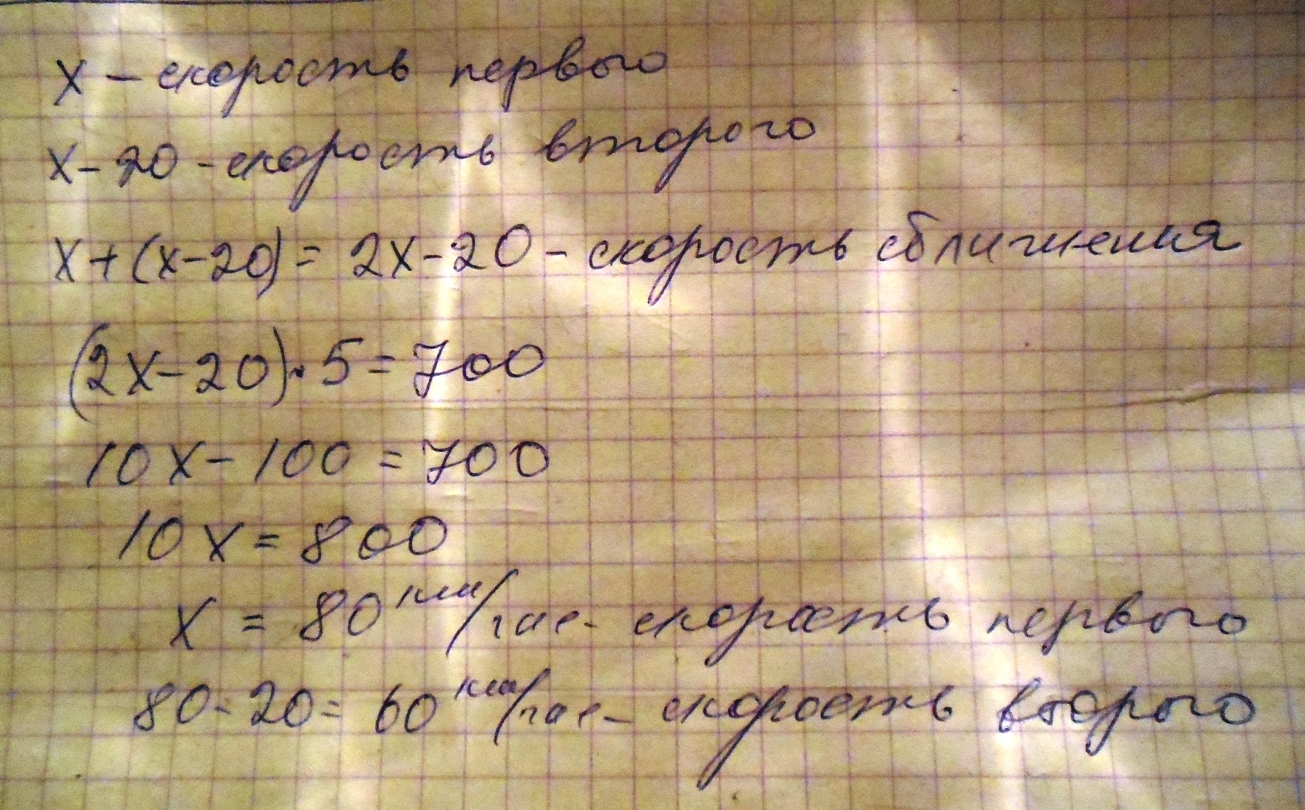 x – скорость первого
x – 20 – скорость второго
x + (x – 20) = 2x – 20 – скорость сближения
(2x – 20) · 5 = 700
10x – 100 = 700
10x = 800
x = 80 км/час – скорость первого
80 – 20 = 60 км/час – скорость второго